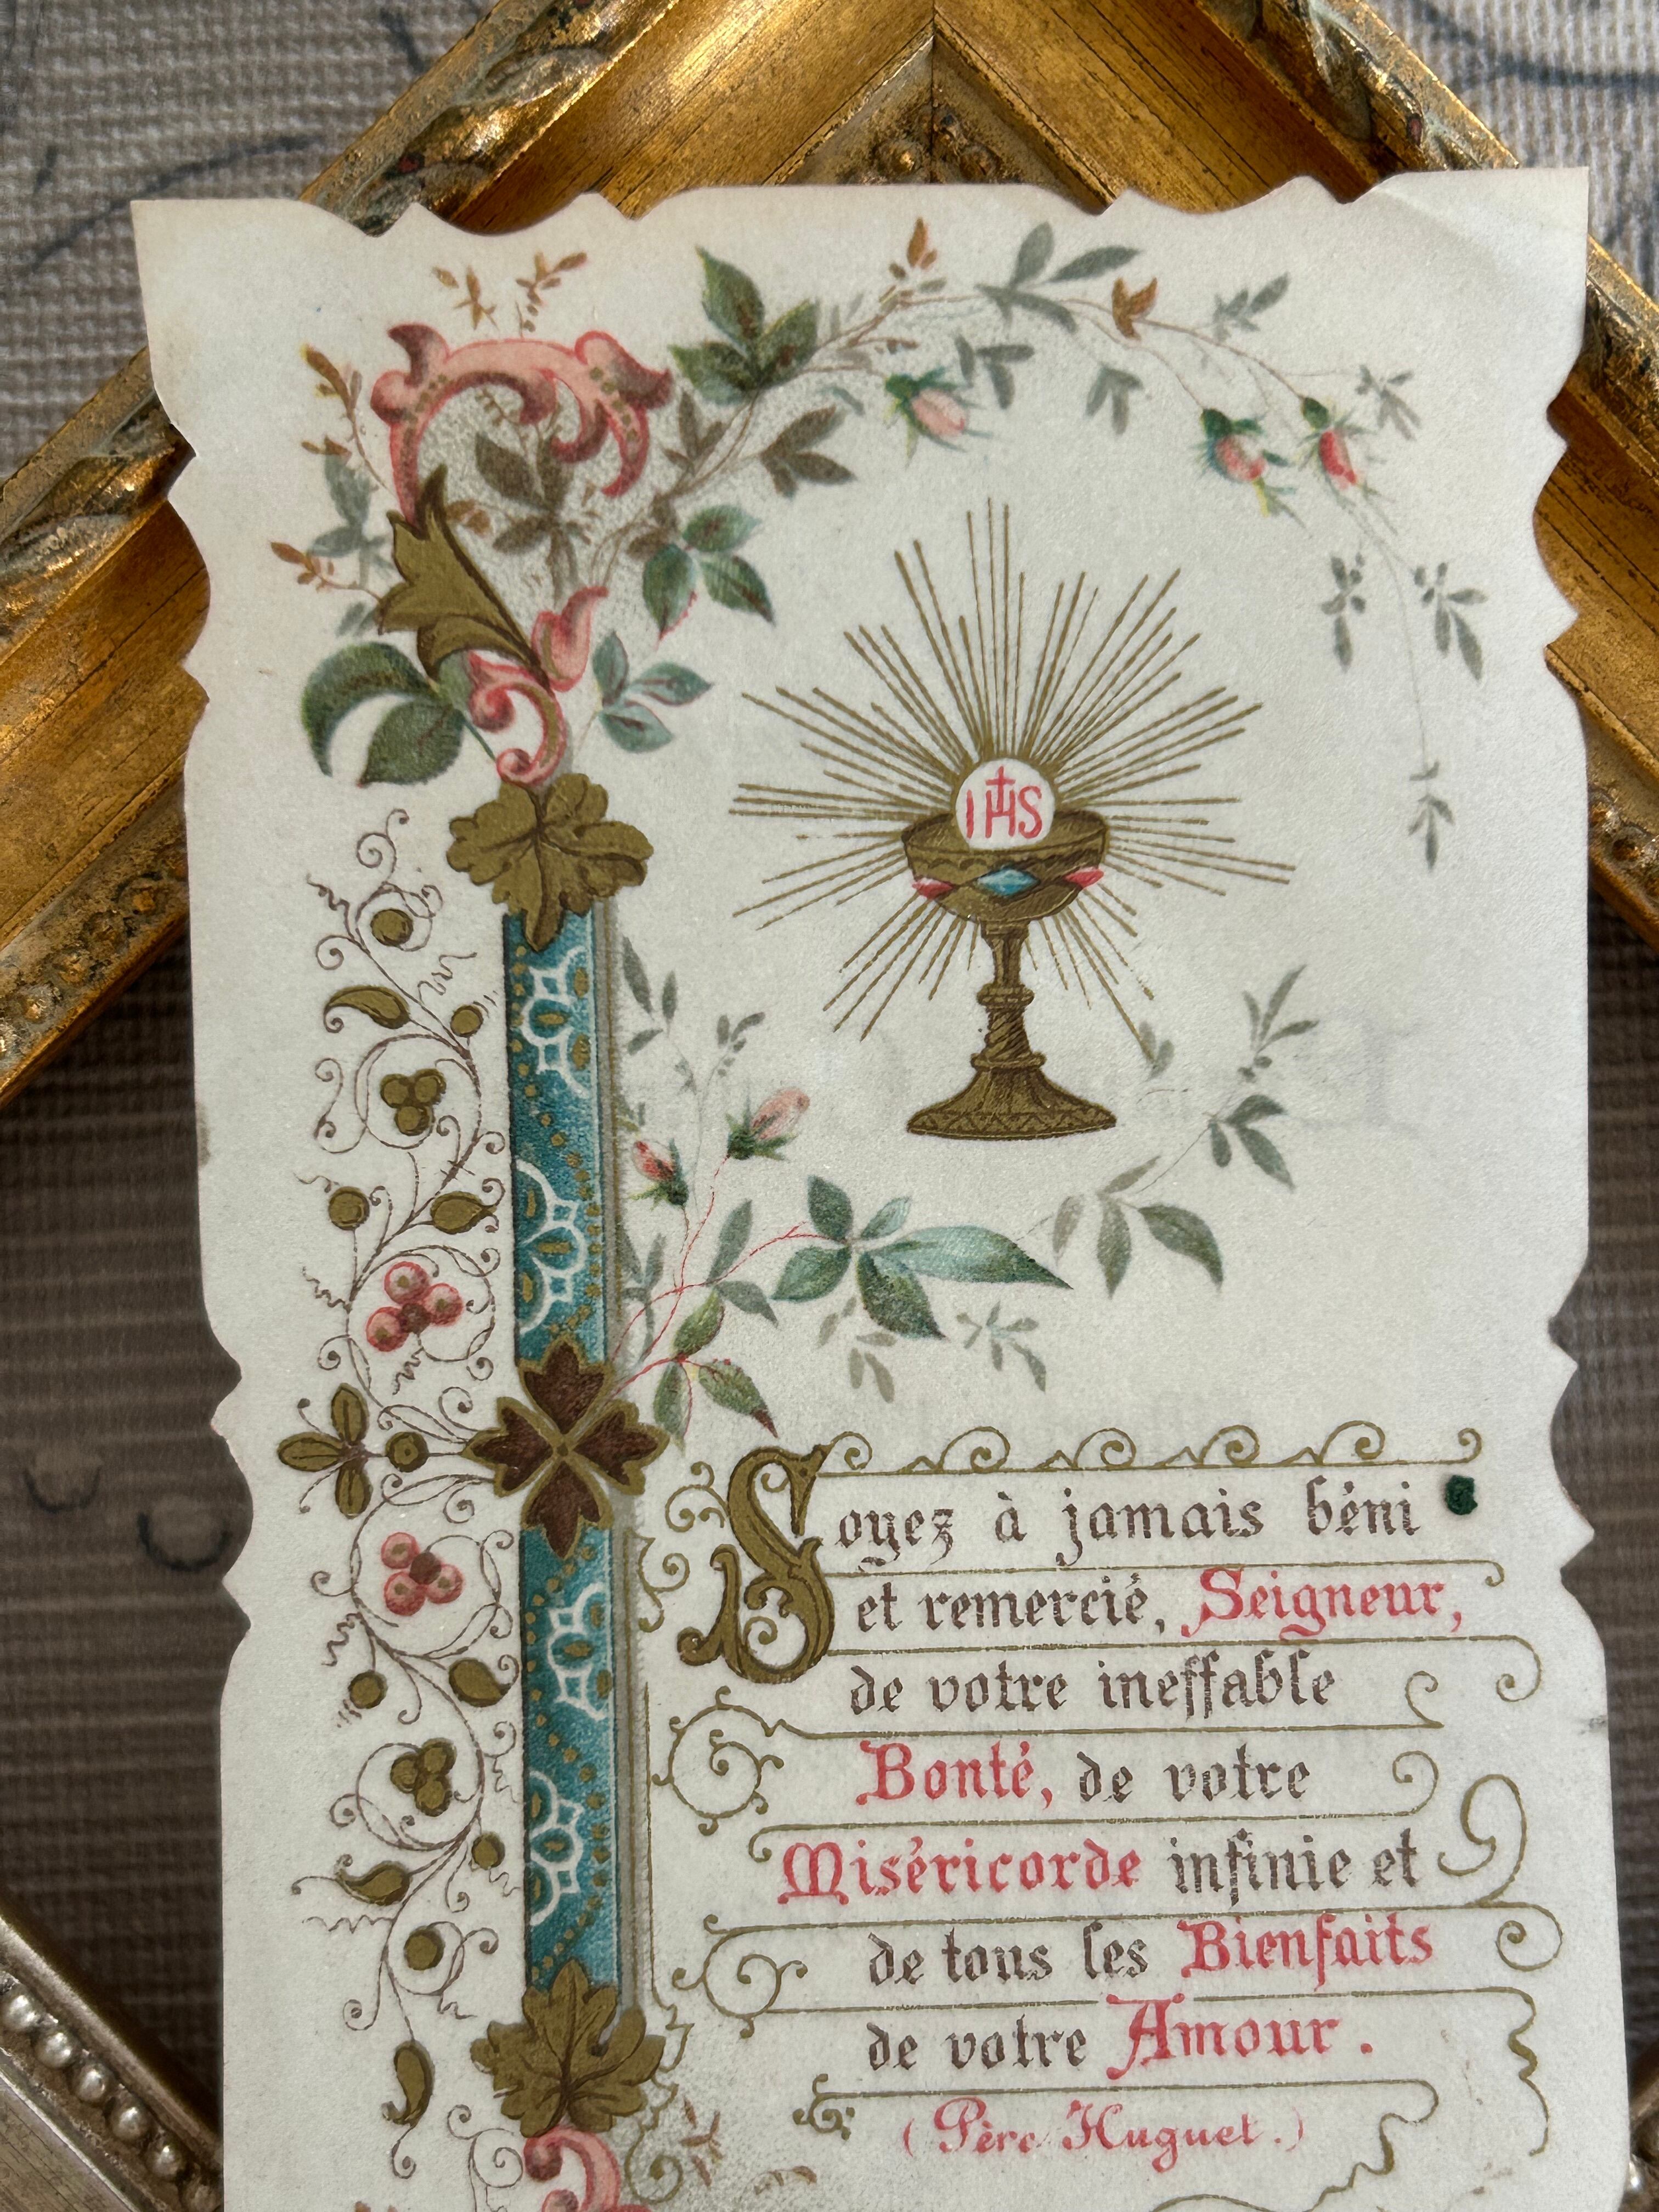 IHS
Soyez à jamais béni
et remercié, Seigneur,
de votre ineffable
Bonté, de votre
Miséricorde infinie et
de tous les Bienfaits
de votre Amour.
(Père Huguet.)